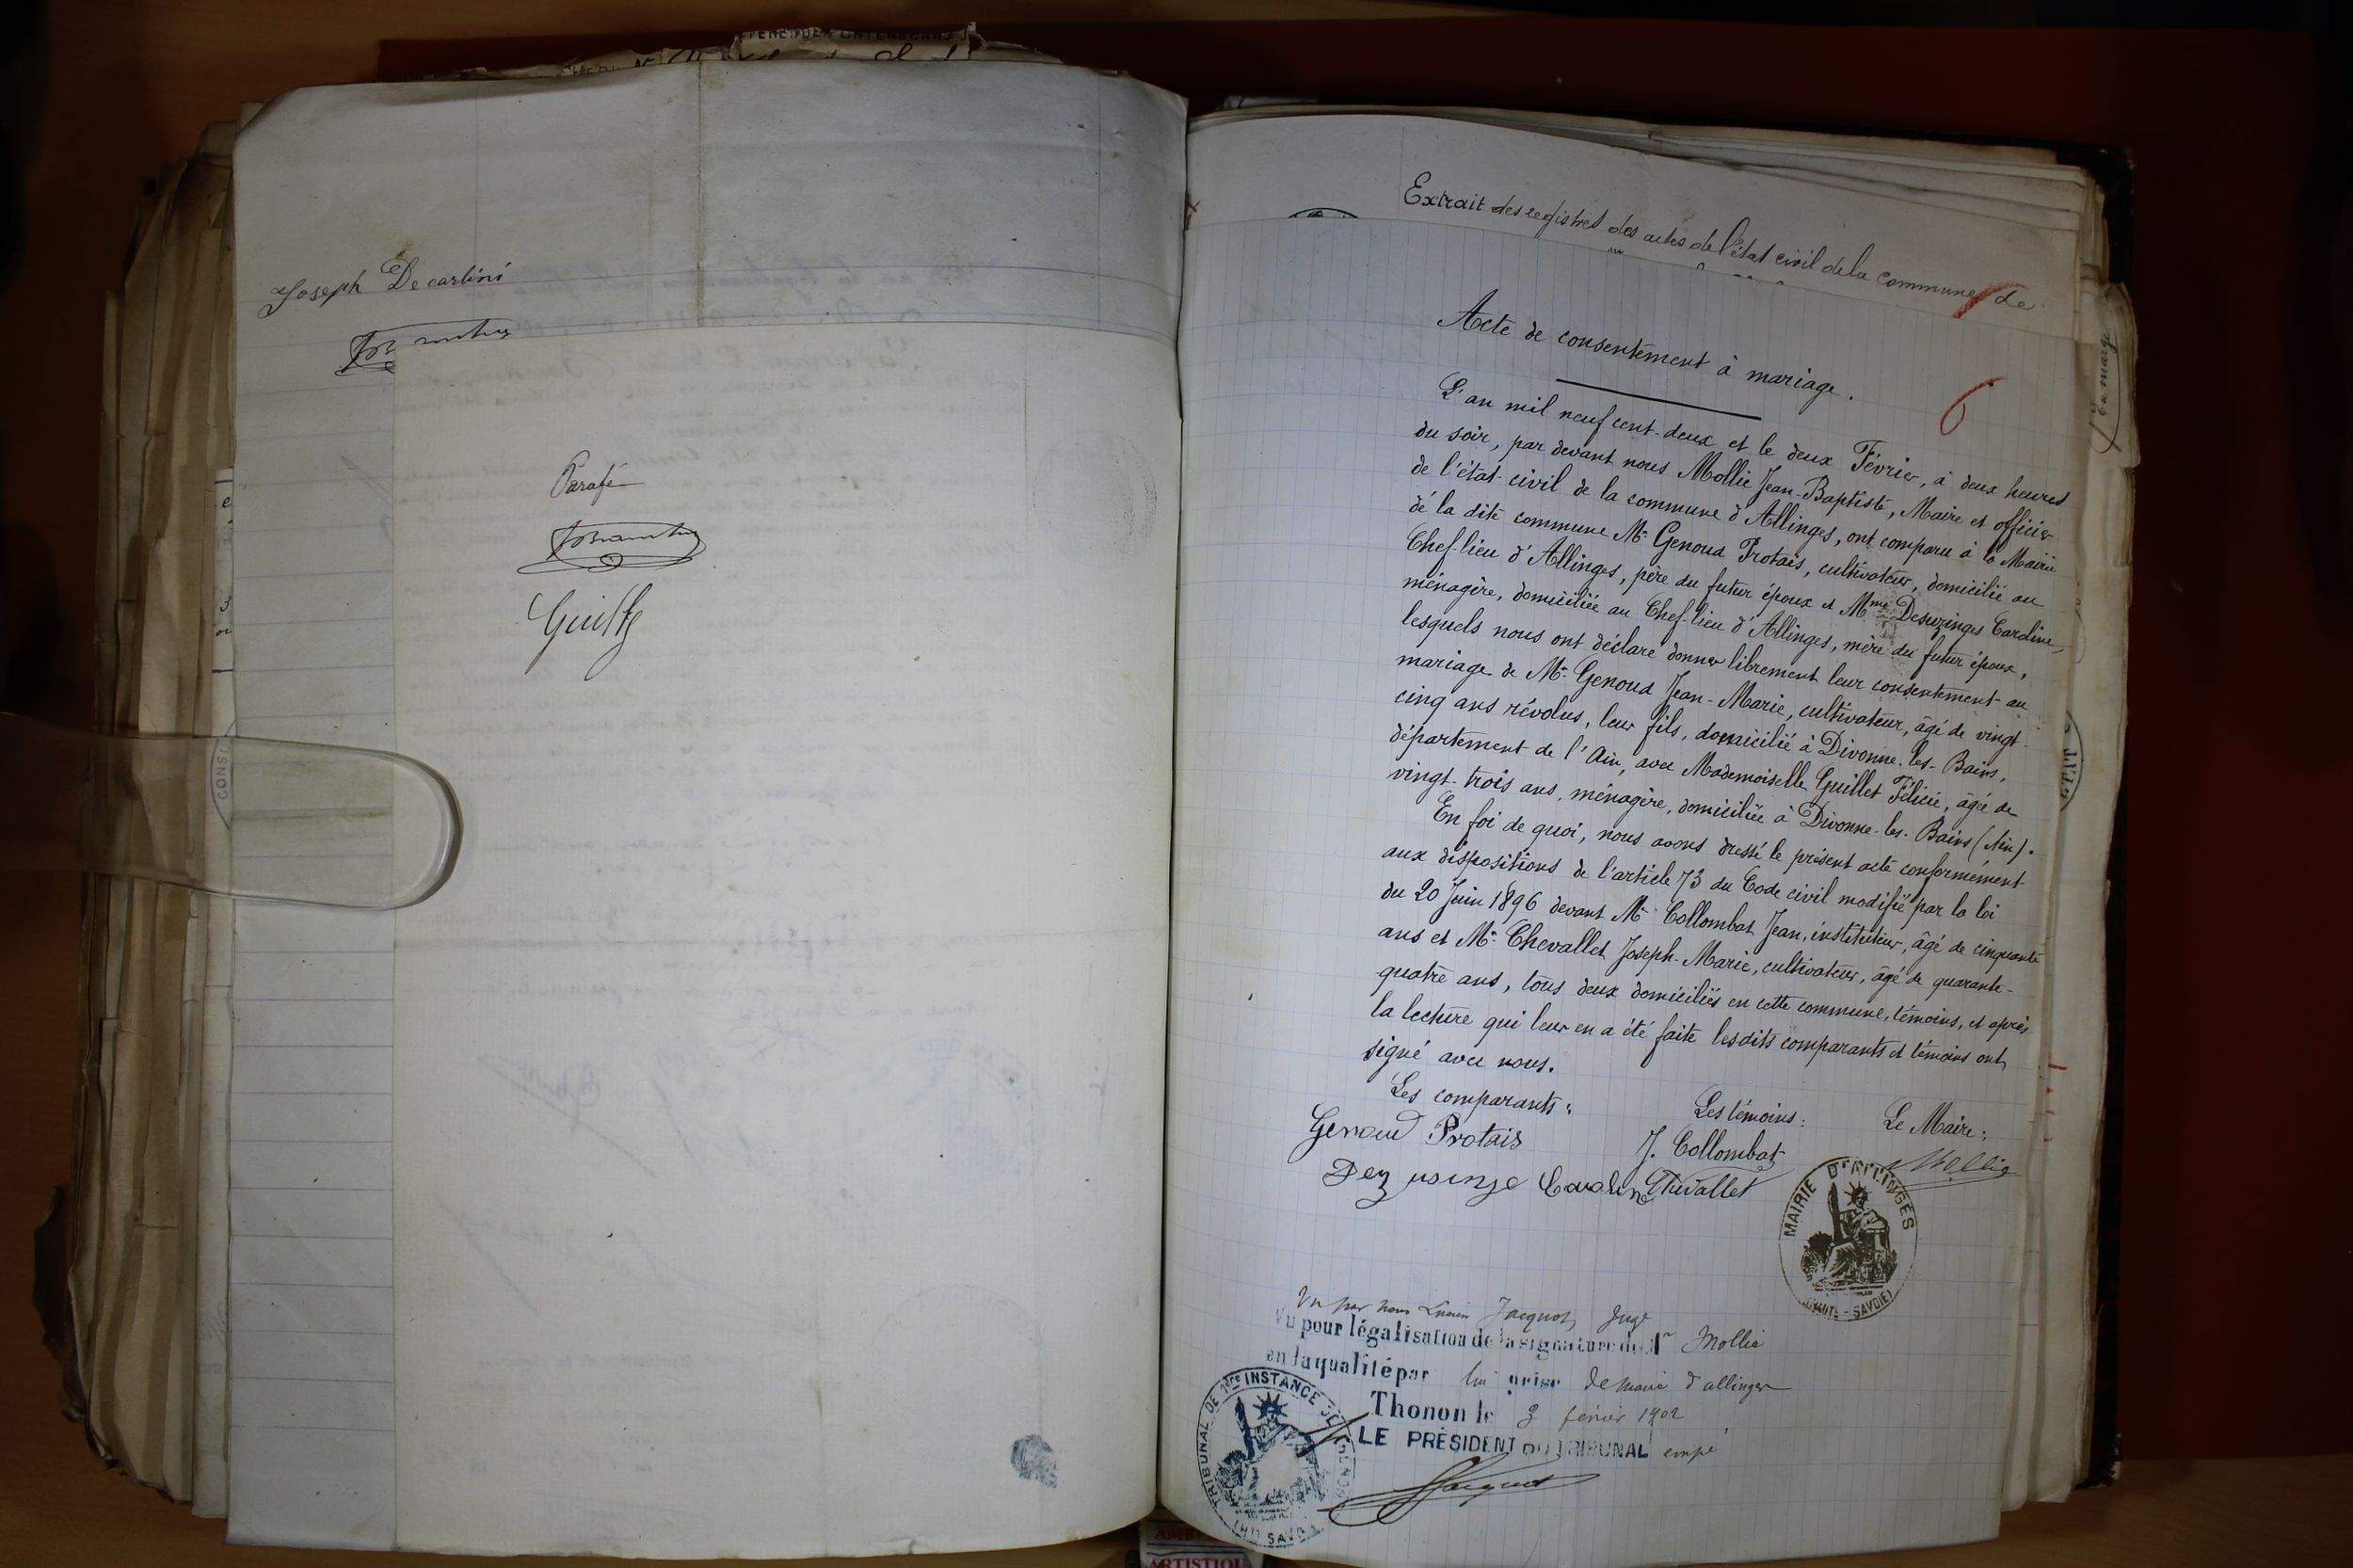 Joseph Decarlini
Parafé
Extrait des registres des actes de l'état civil de la commune de
En marge
6
Acte de consentement à mariage.
L'an mil neuf cent-deux et le deux Février, à deux heures
du soir, par devant nous Mollie Jean-Baptiste, Maire et officier
de l'état-civil de la commune d'Allinges, ont comparu à la Mairie
de la dite commune Mr Genoud Protais, cultivateur, domicilié au
Chef-lieu d'Allinges, père du futur époux et Mme Desuzinges Caroline,
ménagère, domiciliée au Chef-lieu d'Allinges, mère du futur époux,
lesquels nous ont déclaré donner librement leur consentement au
mariage de Mr Genoud Jean-Marie, cultivateur, âgé de vingt-
cinq ans révolus, leur fils, domicilié à Divonne-les-Bains,
département de l'Ain, avec Mademoiselle Guillet Félicie, âgée de
vingt-trois ans, ménagère, domiciliée à Divonne-les-Bains (Ain).
En foi de quoi, nous avons dressé le présent acte conformément
aux dispositions de l'article 73 du Code civil modifié par la loi
du 20 Juin 1896 devant Mr Collombat Jean, instituteur, âgé de cinquante
ans et Mr Chevallet Joseph-Marie, cultivateur, âgé de quarante-
quatre ans, tous deux domiciliés en cette commune, témoins, et après
la lecture qui leur en a été faite lesdits comparants et témoins ont
signé avec nous.
Les comparants: Les témoins: Le Maire:
Genoud Protais J. Collombat Mollie
Dezusinge Caroline Chevallet
MAIRIE D'ALLINGES
(HAUTE-SAVOIE)
Vu par nous Lucien Jacquot, Juge
Vu pour légalisation de la signature de Mr Mollie
en la qualité par lui prise de Maire d'allinges
Thonon le 3 février 1902
LE PRÉSIDENT DU TRIBUNAL empé
Jacquot
TRIBUNAL DE 1ère INSTANCE DE THONON
(Hte SAVOIE)
CONSU
ARTISTIQU